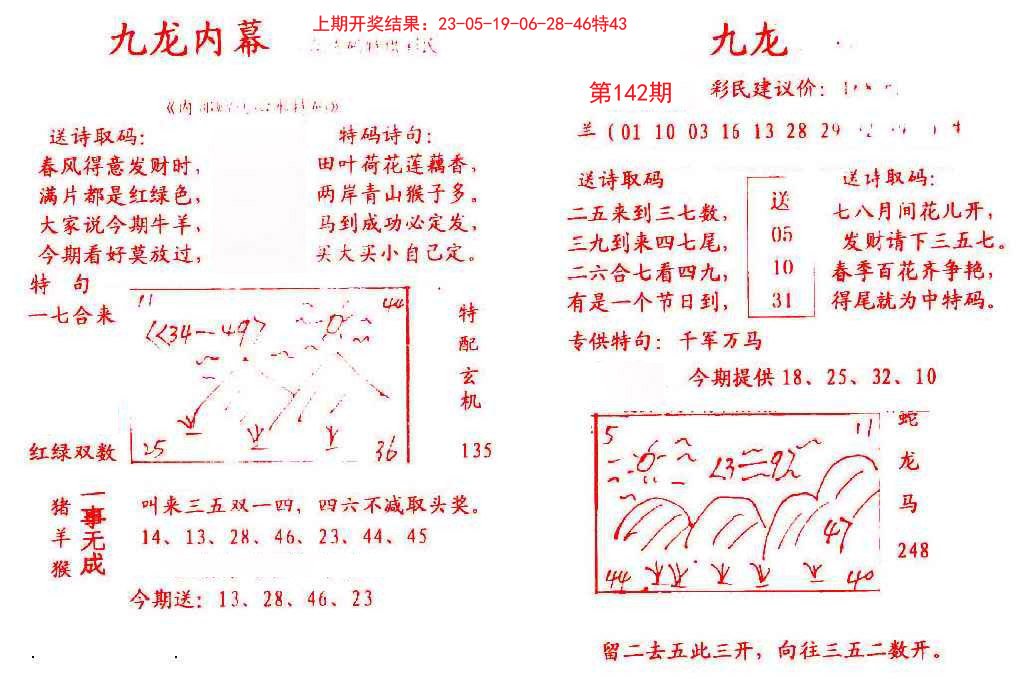 上期开奖结果：23-05-19-06-28-46特43
九龙内幕
送诗取码：
春风得意发财时，
满片都是红绿色，
大家说今期牛羊，
今期看好莫放过，
特码诗句：
田叶荷花莲藕香，
两岸青山猴子多。
马到成功必定发，
买大买小自己定。
特 句
一七合来
红绿双数
11
44
34—49
25
36
特
配
玄
机
135
猪
羊
猴
一
事
无
成
叫来三五双一四，四六不减取头奖。
14、13、28、46、23、44、45
今期送：13、28、46、23
九龙
第142期
彩民建议价：
兰（01 10 03 16 13 28 29
送诗取码
二五来到三七数，
三九到来四七尾，
二六合七看四九，
有是一个节日到，
送
05
10
31
送诗取码：
七八月间花儿开，
发财请下三五七。
春季百花齐争艳，
得尾就为中特码。
专供特句：千军万马
今期提供 18、25、32、10
5
11
47
44
40
蛇
龙
马
248
留二去五此三开，向往三五二数开。